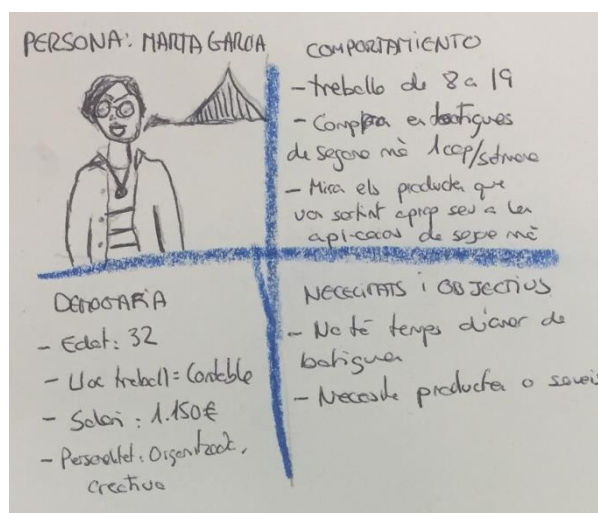 PERSONA: MARTA GARCIA
COMPORTAMIENTO
- treballo de 8 a 19
- Compra en botigues
de segona mà 1 cop/setmana
- Mira els productes que
van sortint aprop seu a les
aplicacions de segona mà
DEMOGRAFIA
- Edat: 32
- Lloc treball = Contable
- Salari: 1.150€
- Personalitat: Organitzada,
creativa
NECECITATS i OBJECTIUS
- No té temps d'anar de
botigues
- Necesita productes o serveis